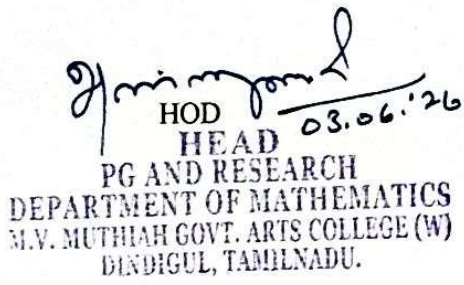 HOD
03.06.'26
HEAD
PG AND RESEARCH
DEPARTMENT OF MATHEMATICS
M.V. MUTHIAH GOVT. ARTS COLLEGE (W)
DINDIGUL, TAMILNADU.